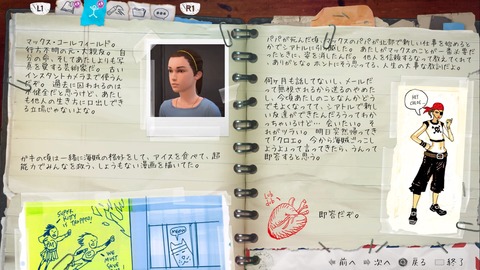 L1
R1
マックス・コールフィールド。
行方不明の元・大親友。自
分の命、そしてあたしよりも写
真を愛する芸術家だ。古い
インスタントカメラまで使うん
だ。過去に囚われるのは
不健全だと思うけど、あた
しも他人の生き方に口出しでき
る立場じゃないよな。
ガキの頃は一緒に海賊の格好をして、アイスを食べて、超
能力でみんなを救う、しょうもない漫画を描いてた。
パパが死んだ頃、マックスのパパが北部で新しい仕事を始めると
かでシアトルに引っ越した。あたしがマックスのことが一番必要だ
ったときに。姿を消したんだ。他人を信頼するなって教えてくれて
ありがとな。ホントだろうって？る。人生の大事な教訓だよ。
何ヶ月も話してないし、メールだ
って無視されるから送るのやめた
し、今頃あたしのことなんかどう
でもよくなってて、シアトルで新し
い友達ができたんだろうってわか
っちゃいるけど…会いたい。そ
れがツラい。明日突然帰ってき
て「クロエ。今から海賊ごっこし
ようよ」って言ってきたら、うんって
即答すると思う。
即答だぞ。
HEY CHLOE.
前へ 次へ 戻る 終了